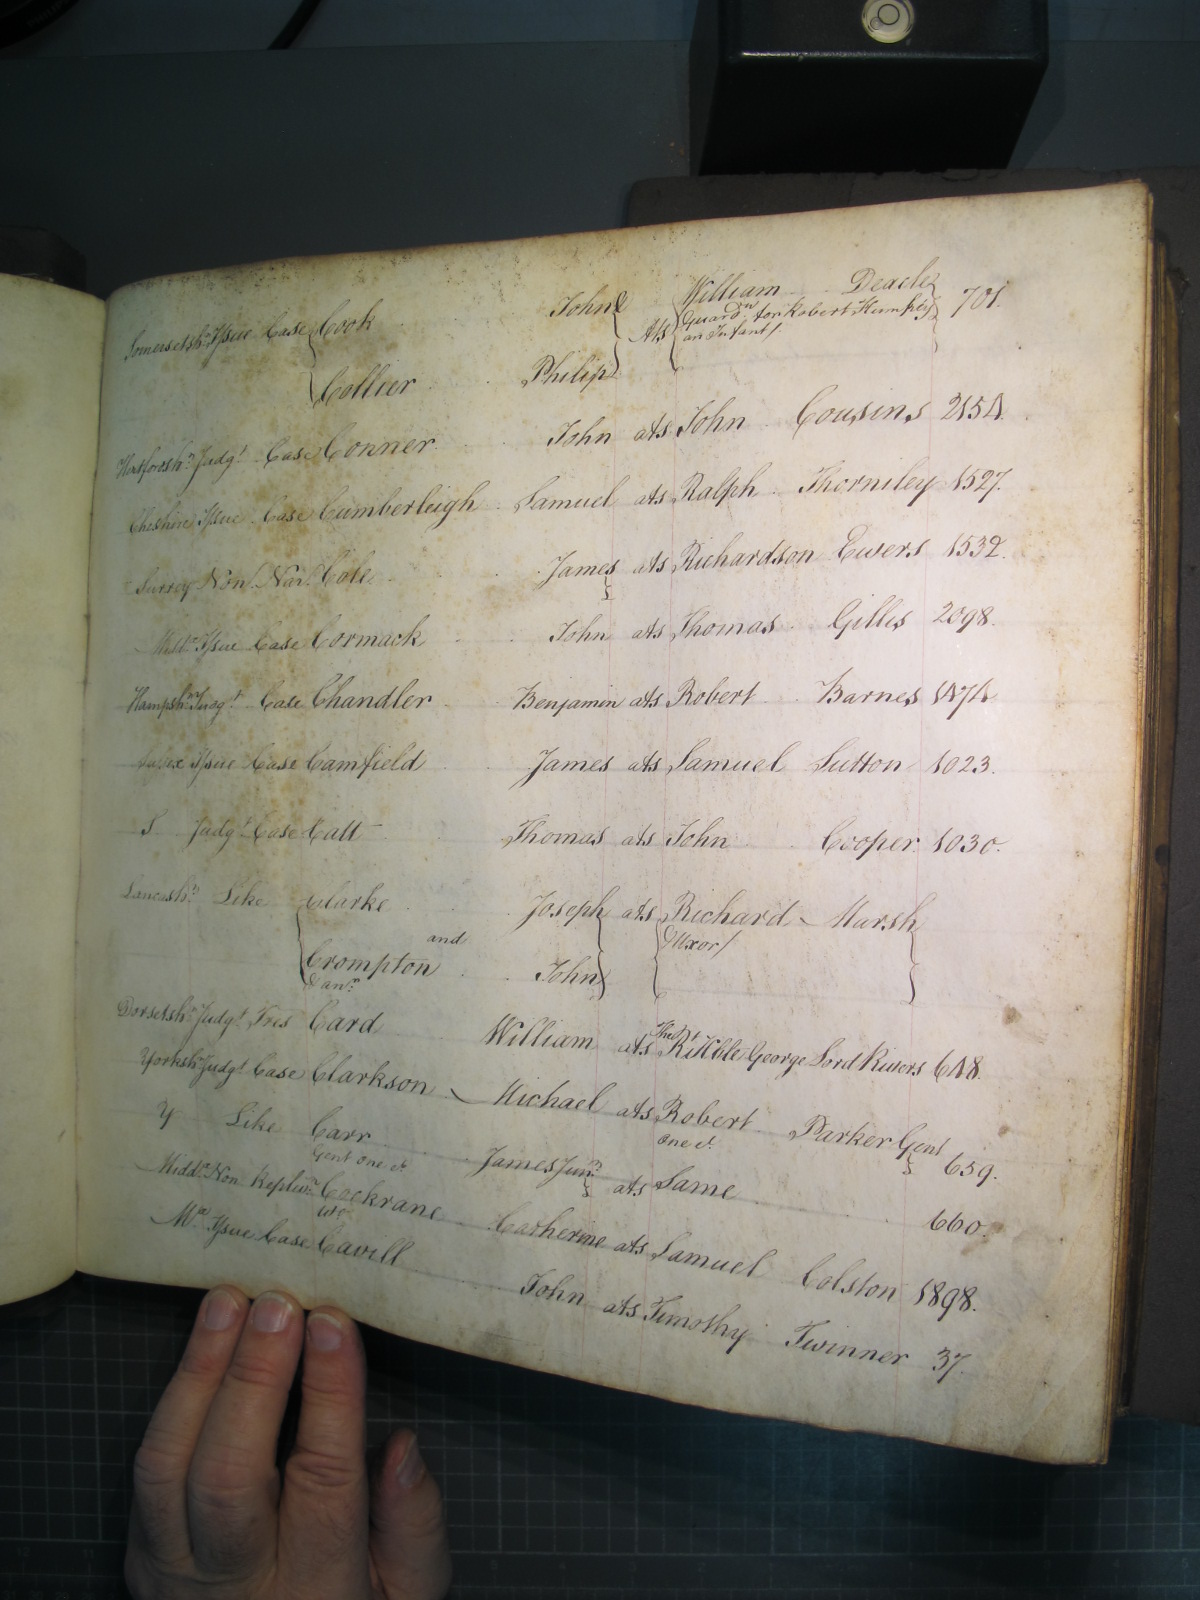 Somersetsh: Issue Case Cook John & Ats William Deacle 701.
Guardn. for Robert Humphry
an Infant/.
Collier Philip
Hertfordsh: Judgt. Case Conner John ats John Cousins 2154.
Cheshire Issue Case Cumberleigh Samuel ats Ralph Thorniley 1527.
Surrey Non Narr. Cole James ats Richardson Ewers 1532.
Middx. Issue Case Cormack John ats Thomas Gilles 2098.
Hampsh: Judgt. Case Chandler Benjamin ats Robert Barnes 1474
Sussex Issue Case Camfield James ats Samuel Sutton 1023.
S Judgt. Case Catt Thomas ats John Cooper 1030.
Lancash: Like Clarke Joseph ats Richard Marsh
and & Uxor/
Crompton John
& anr.
Dorsetsh: Judgt. Tres Card William ats The Rt. Hble George Lord Rivers 648.
Yorksh: Judgt. Case Clarkson Michael ats Robert Parker Gent 659.
one &c.
Y Like Carr James Junr. ats Same 660.
Gent one &c
Middx. Non Replevn. Cockrane Catherine ats Samuel Colston 1898.
Wo.
Mx. Issue Case Cavill John ats Timothy Twinner 37.